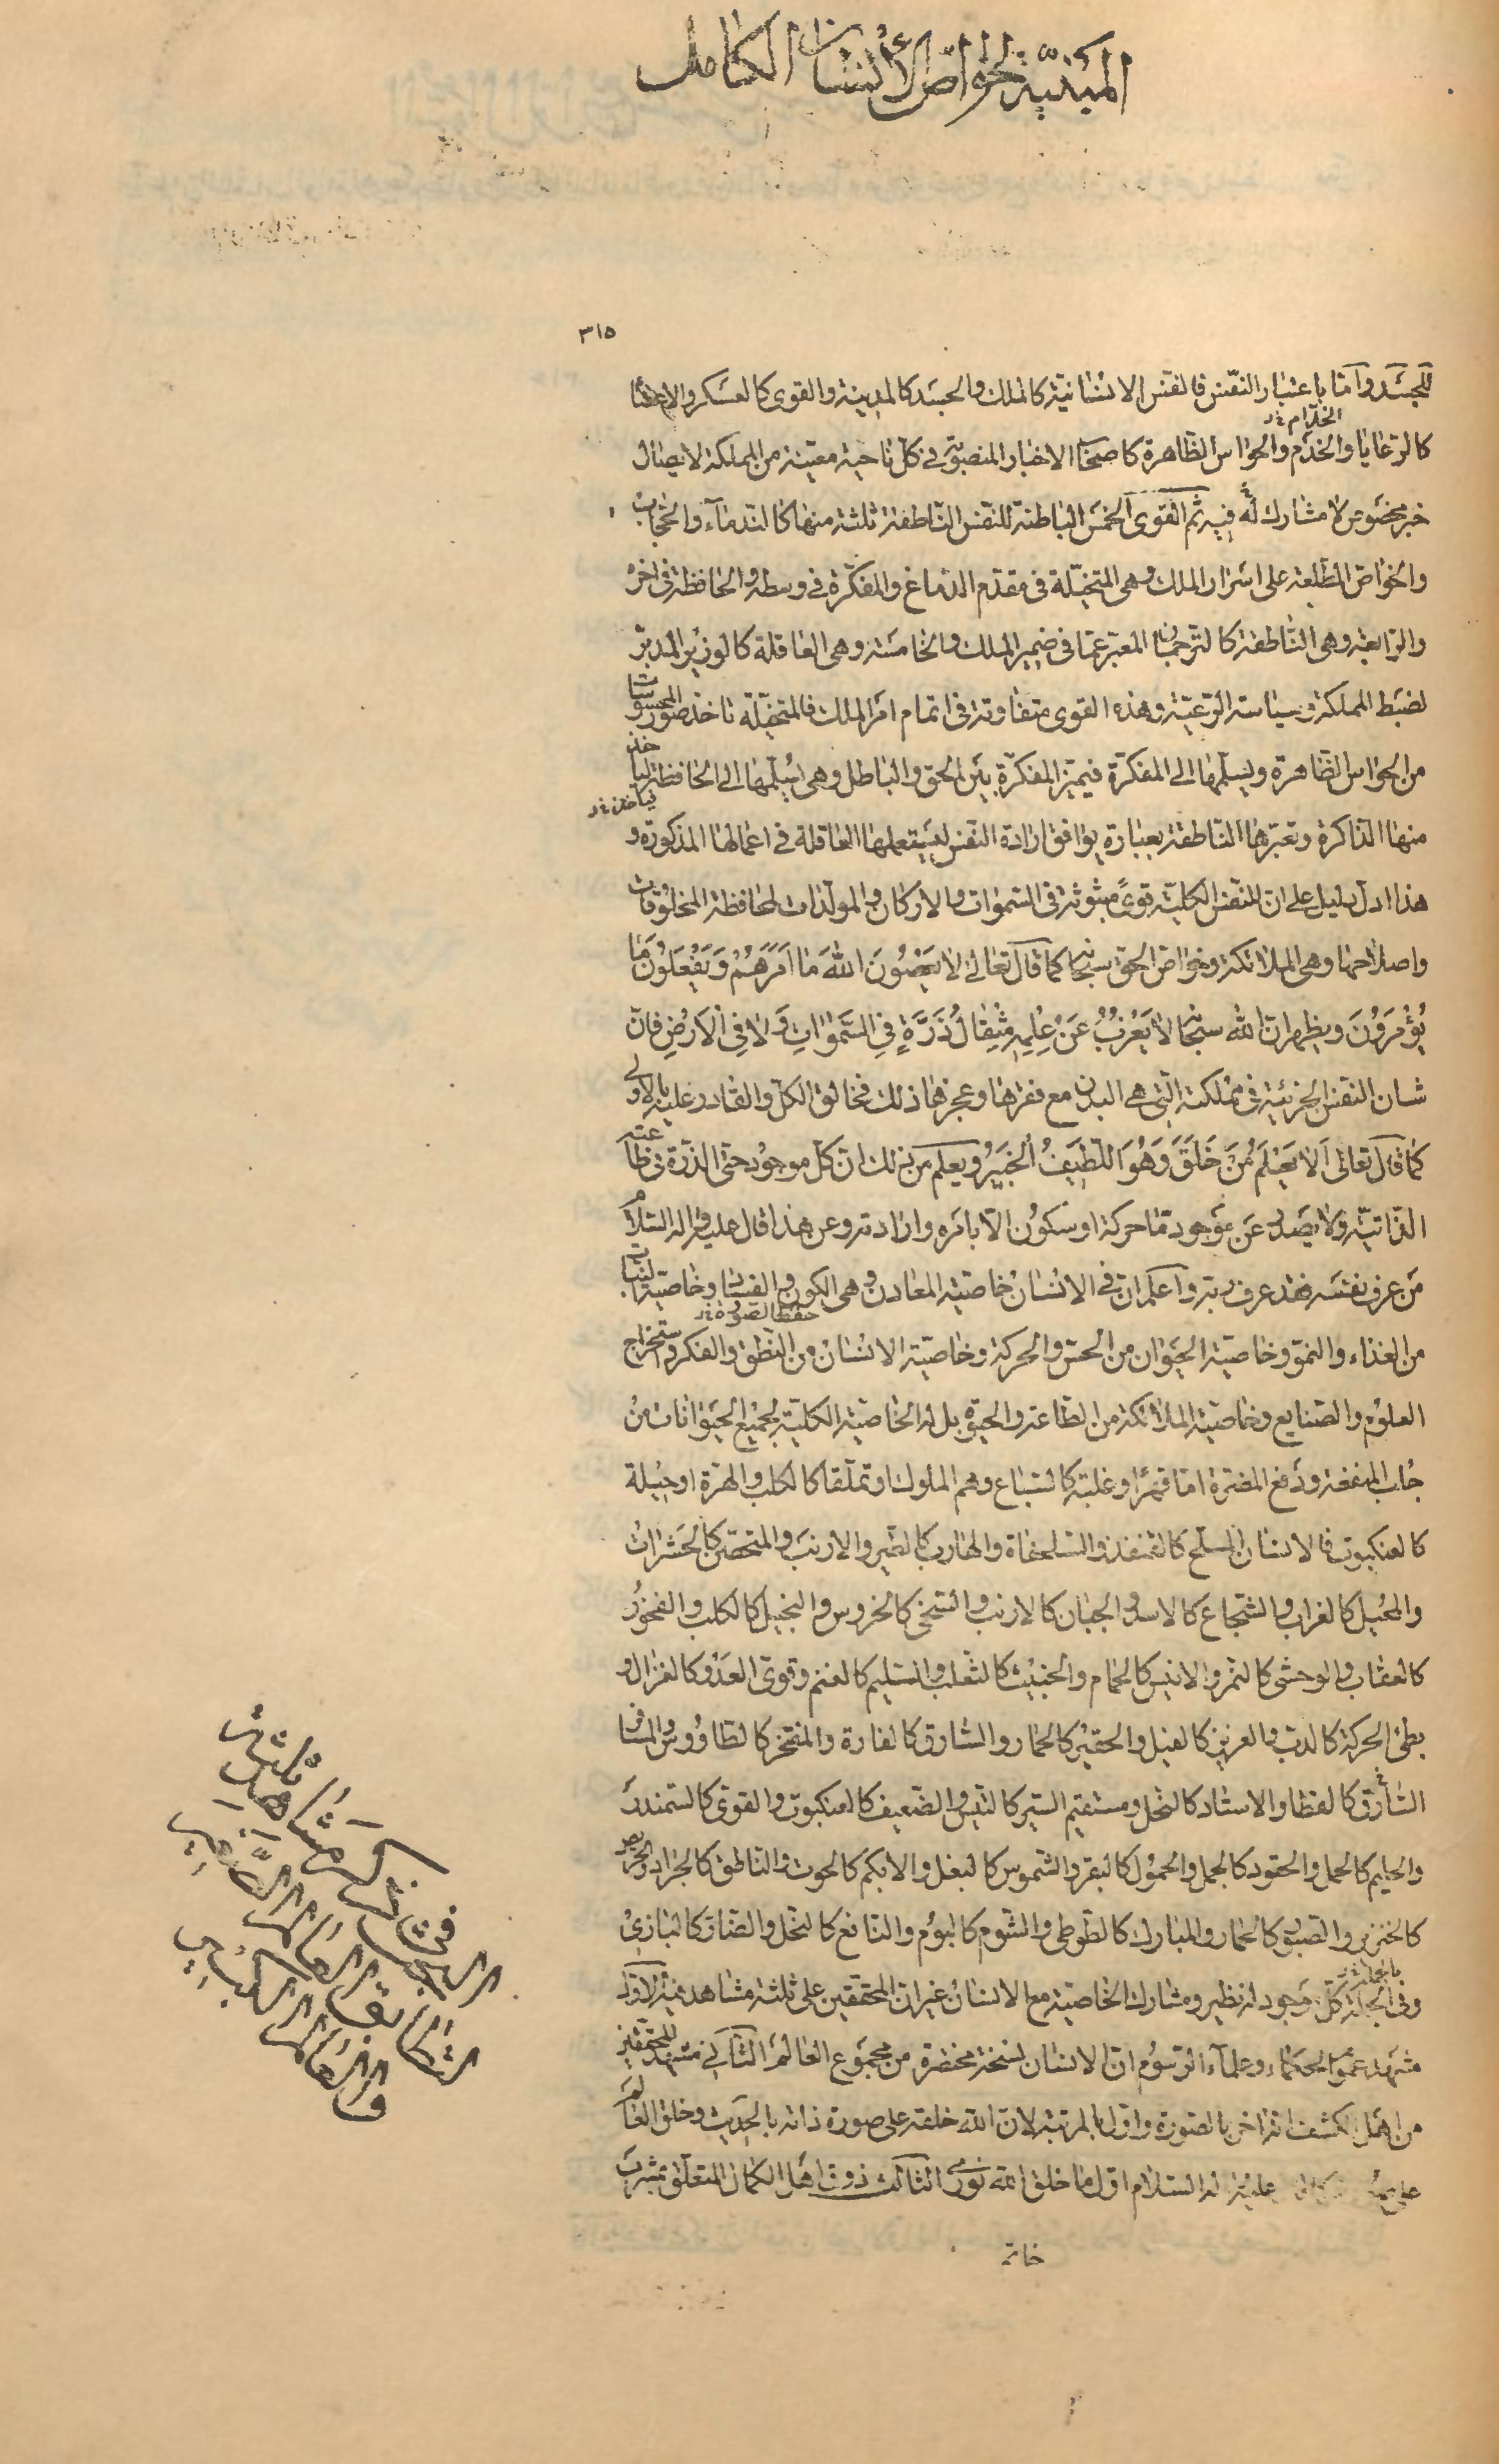 المبينة لخواص الأنسان الكامل
٣١٥
للجسد واما باعتبار النفس فالنفس الانسانية كالملك والجسد كالمدينة والقوى كالعسكر والاعضا
الخدام خ
كالرعايا والخدم والحواس الظاهرة كاصحاب الاخبار المنصوبة في كل ناحية معينة من المملكة لايصال
خبر مخصوص لا مشارك له فيه ثم القوى الخمس الباطنة للنفس الناطقة ثلثة منها كالندماء والحجاب
والخواص المطلعة على اسرار الملك وهى المتخيلة فى مقدم الدماغ والمفكرة في وسطه والحافظة فى اخره
والرابعة وهى الناطقة كالترجمان المعبر عما فى ضمير الملك والخامسة وهى العاقلة كالوزير المدبر
لضبط المملكة وسياسة الرعية وهذه القوى متفاوتة فى اتمام امر الملك فالمتخيلة تاخذ صور المحسوسات
من الحواس الظاهرة ويسلمها الى المفكرة فيميز المفكرة بين الحق والباطل وهى يسلمها الى الحافظة لياخذ
فياخذ خ
منها الذاكرة وتعبرها الناطقة بعبارة يوافق ارادة النفس ليستعملها العاقلة في اعمالها المذكورة و
هذا ادل دليل على ان للنفس الكلية قوىً مبثوثة فى السموات والاركان والمولدات لمحافظة المخلوقات
واصلاحها وهى الملائكة وخواص الحق سبحانه كما قال تعالى لا يَعْصُونَ اللهَ مَا اَمَرَهُمْ وَيَفْعَلُونَ مَا
يُؤْمَرُونَ ويظهر ان الله سبحانه لا يَعْزُبُ عَنْ عِلْمِهِ مِثْقَالُ ذَرَّةٍ فِي السَّمٰوَاتِ وَلا فِي الْاَرْضِ فان
شان النفس الجزئية فى مملكته التي هي البدن مع فقرها وعجزها ذلك فخالق الكل والقادر عليه بالاولى
كما قال تعالى اَلا يَعْلَمُ مَنْ خَلَقَ وَهُوَ اللَّطِيفُ الْخَبِيرُ ويعلم من ذلك ان كل موجود حتى الذرة فى طاعته
الذاتية ولا يصدر عن موجود ما حركة او سكون الا بامره وارادته وعن هذا قال عليه واله السلام
من عرف نفسه فقد عرف ربه واعلم ان في الانسان خاصية المعادن وهى الكون والفساد وخاصية النبات
حفظ الصورة خ
من الغذاء والنمو وخاصية الحيوان من الحس والحركة وخاصية الانسان من النطق والفكر واستخراج
العلوم والصنايع وخاصية الملائكة من الطاعة والحيوة بل له الخاصية الكلية لجميع الحيوانات من
جلب المنفعة ودفع المضرة اما قهرا وغلبة كالسباع وهم الملوك او تملقا كالكلب والهرة او حيلة
كالعنكبوت فالانسان المسلح كالقنفذ والسلحفاة والهارب كالطير والارنب والمتحصن كالحشرات
والمحيل كالغراب والشجاع كالاسد والجبان كالارنب والسخى كالخروس والبخيل كالكلب والفخور
كالعقاب والوحشى كالنمر والانيس كالحمام والخبيث كالثعلب والسليم كالغنم وقوى العدو كالغزال و
بطئ الحركة كالدب والعزيز كالفيل والحقير كالحمار والسارق كالفارة والمفتخر كالطاووس والمسافر
السارق كالقطا والاستاد كالنحل ومستقيم السير كالتيس والضعيف كالعنكبوت والقوى كالسمندر
والحليم كالحمل والحقود كالجمل والحمول كالبقر والشموس كالبغل والابكم كالحوت والناطق كالجراد والحريص
كالخنزير والصبور كالحمار والمبارك كالطوطى والشوم كالبوم والنافع كالنحل والضار كالبازى
بالجملة خ
وفى الجملة كل موجود له نظير ومشارك الخاصية مع الانسان غير ان المحققين على ثلثة مشاهد فيه الاول
مشهد عموم الحكماء وعلماء الرسوم ان الانسان نسخة مختصرة من مجموع العالم الثاني مشهد المحققين
من اهل الكشف انه اخر بالصورة واول بالمرتبة لان الله خلقه على صورة ذاته بالحديث وخلق العالم
على عليه واله السلام اول ما خلق الله نوري الثالث ذوق اهل الكمال المتعلق بمشرب
خاتم
في ذكر مشاهد ثلثة
التى
التطابق العالم الصغير
والعالم الكبير